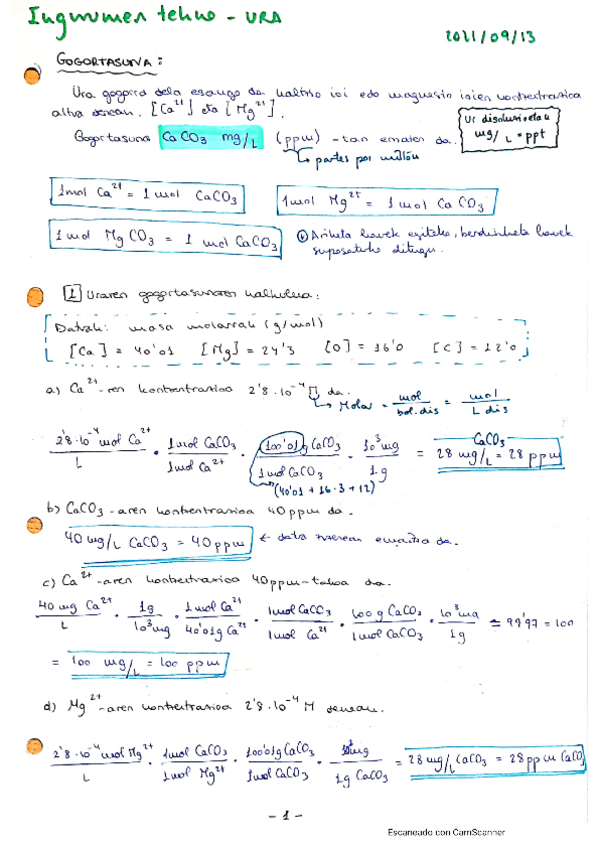 Ingurumen tekno - URA
2021/09/13
GOGORTASUNA:
Ura gogorra dela esango da kaltzio ioi edo magnesio ioien kontzentrazioa
altua denean. [Ca²⁺] eta [Mg²⁺].
Gogortasuna CaCO₃ mg/L (ppm) -tan ematen da.
Ur disoluzioetan
mg/L = ppt
↳ partes por millón
1mol Ca²⁺ = 1 mol CaCO₃
1mol Mg²⁺ = 1 mol CaCO₃
1 mol MgCO₃ = 1 mol CaCO₃
Ariketa hauek egiteko, berdinketa hauek
suposatuko ditugu.
1 Uraren gogortasunaren kalkulua:
Datuak: masa molarrak (g/mol)
[Ca] = 40'01 [Mg] = 24'3 [O] = 16'0 [C] = 12'0
a) Ca²⁺-ren kontzentrazioa 2'8·10⁻⁴ M da.
↳ Molar = mol/bol.dis = mol/L dis
2'8·10⁻⁴ mol Ca²⁺/L · 1mol CaCO₃/1mol Ca²⁺ · 100'01g CaCO₃/1mol CaCO₃ · 10³mg/1g = CaCO₃ 28 mg/L = 28 ppm
(40'01 + 16·3 + 12)
b) CaCO₃-aren kontzentrazioa 40ppm da.
40 mg/L CaCO₃ = 40ppm ← datu bezala emanda da.
c) Ca²⁺-aren kontzentrazioa 40ppm-takoa da.
40 mg Ca²⁺/L · 1g/10³mg · 1mol Ca²⁺/40'01g Ca²⁺ · 1mol CaCO₃/1mol Ca²⁺ · 100 g CaCO₃/1mol CaCO₃ · 10³mg/1g = 99'97 = 100
= 100 mg/L = 100 ppm
d) Mg²⁺-aren kontzentrazioa 2'8·10⁻⁴ M denean.
2'8·10⁻⁴ mol Mg²⁺/L · 1mol CaCO₃/1mol Mg²⁺ · 100'01g CaCO₃/1mol CaCO₃ · 10³mg/1g CaCO₃ = 28 mg/L CaCO₃ = 28ppm CaCO
- 1 -
Escaneado con CamScanner